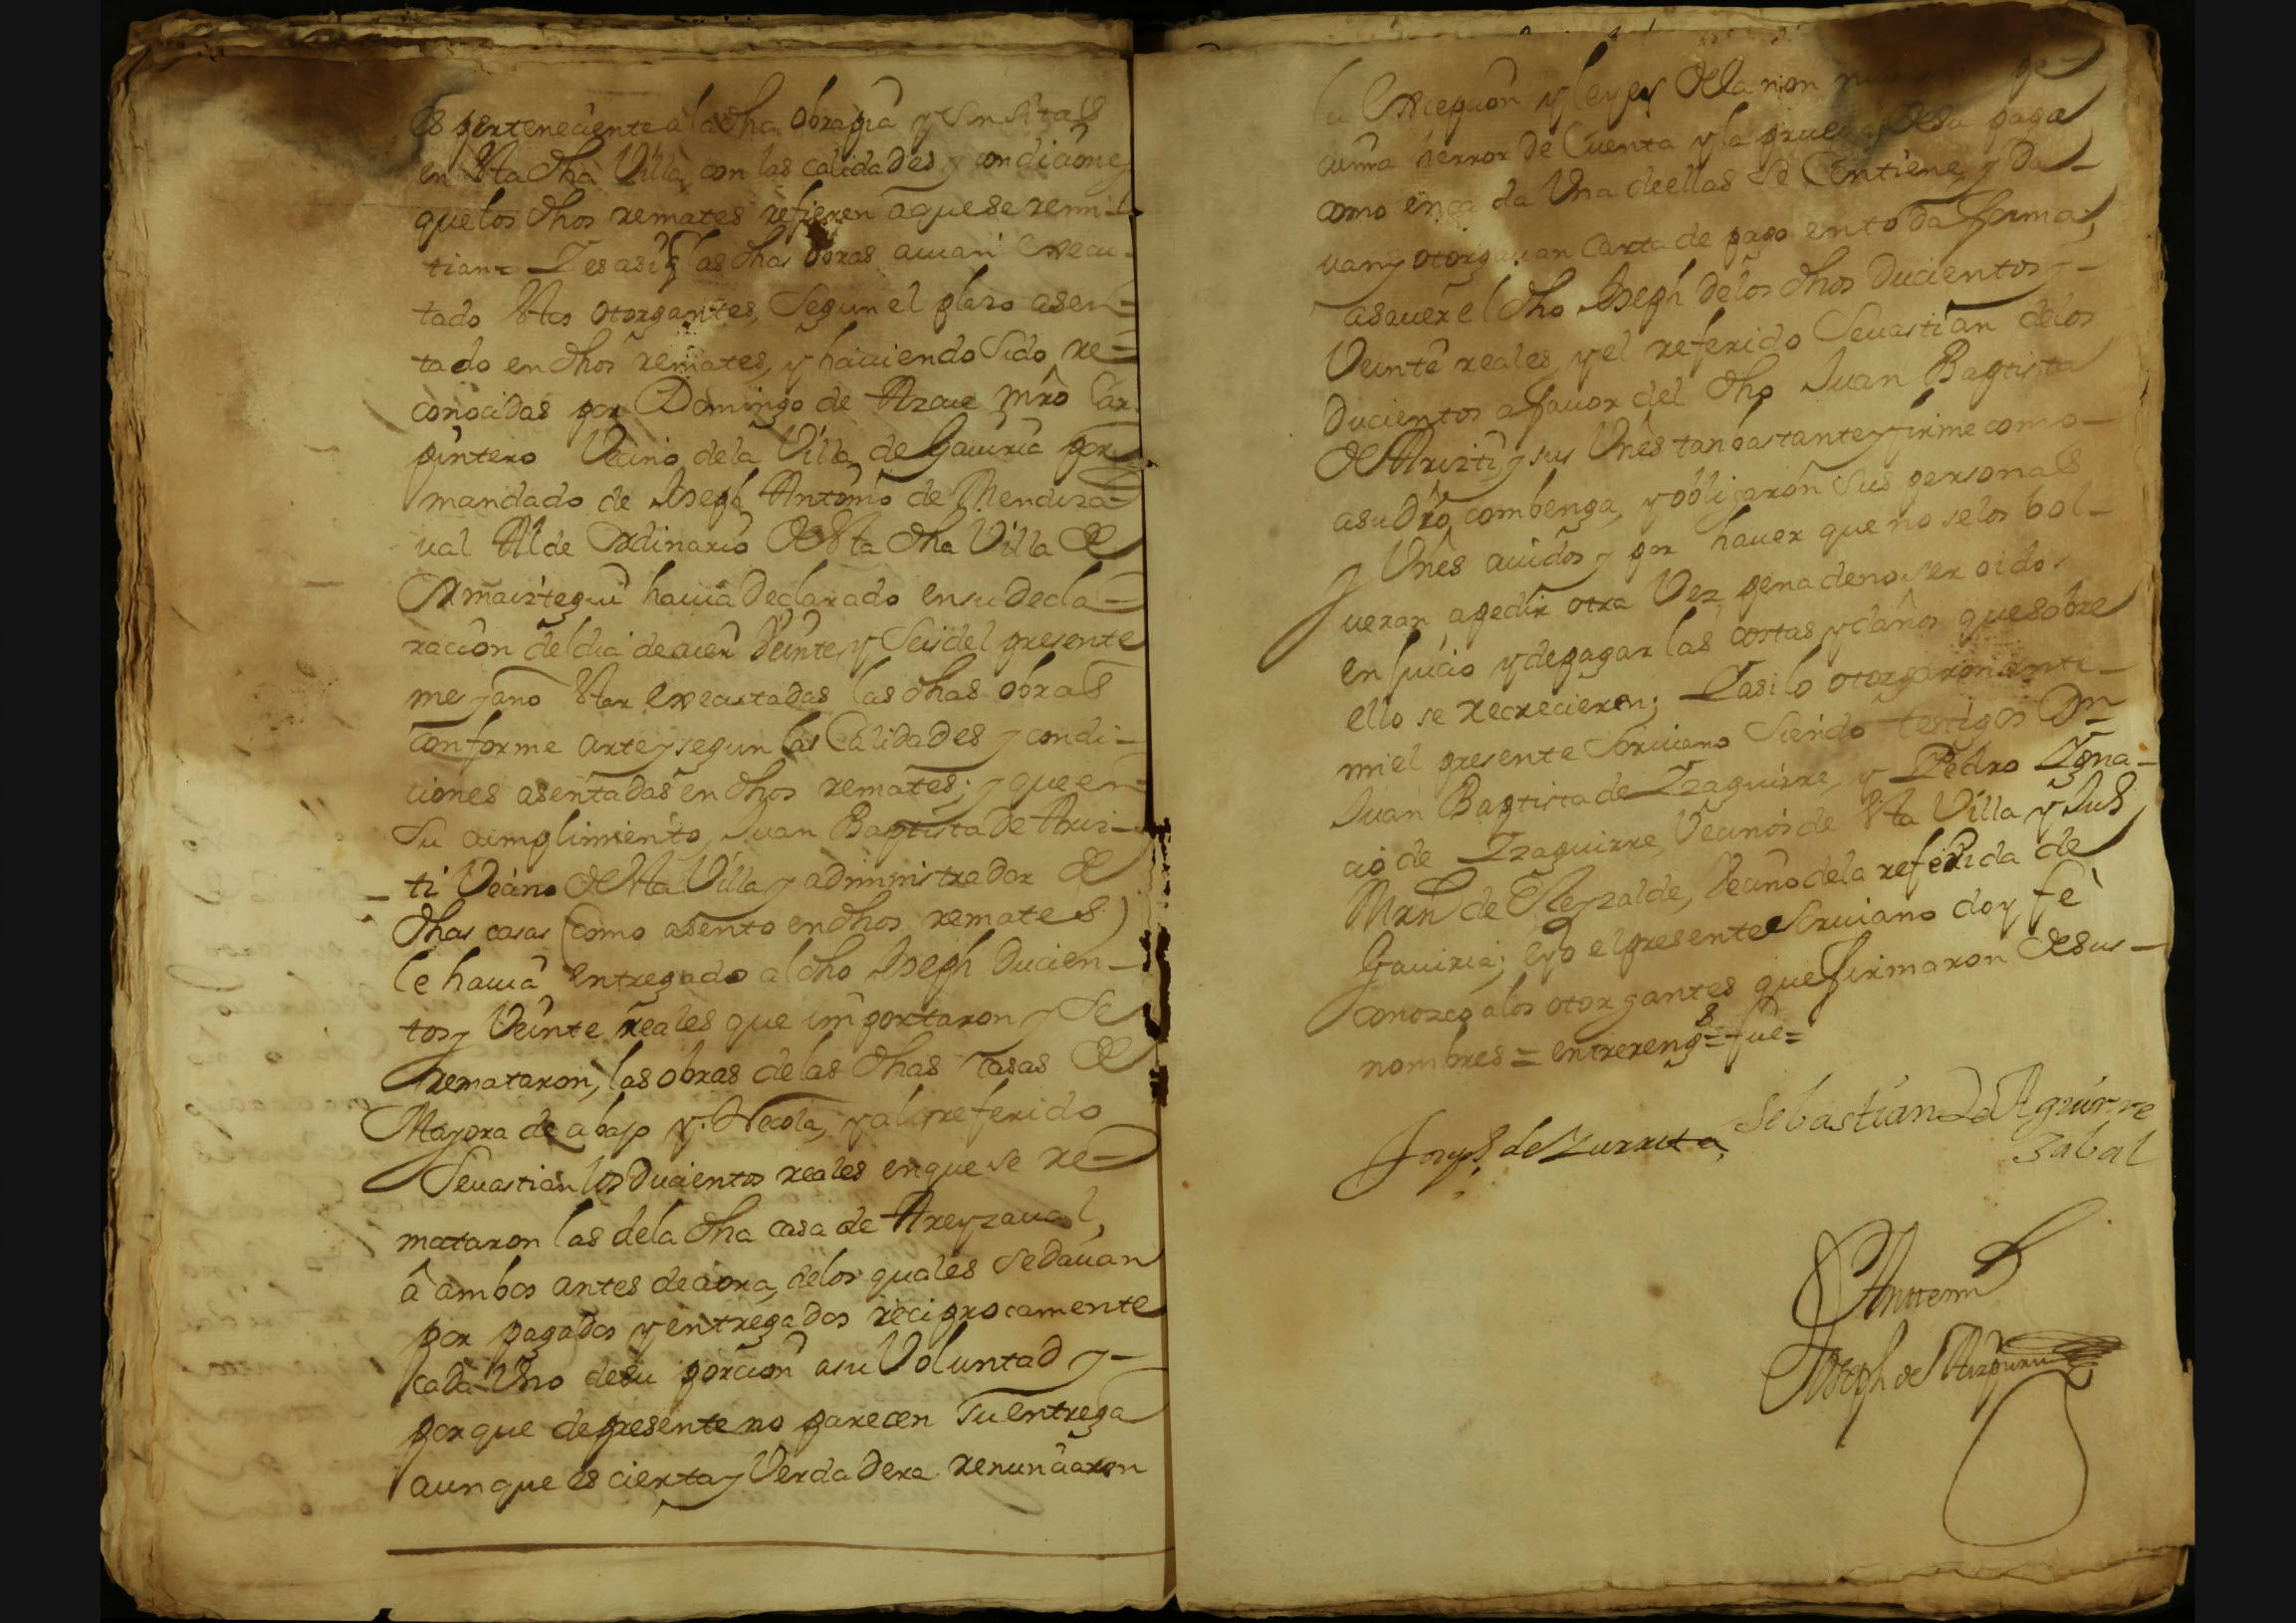 es perteneciente a la dha obrapia y sin sitas
en esta dha Villa, con las calidades y condiciones
que los dhos remates refieren a que se remi-
tian = Y es asi q las dhas obras avian execu-
tado estos otorgantes, segun el plazo asen=
tado en dhos remates, y haviendo sido re=
conocidas por Domingo de Azcue Mro Car-
pintero Vecino de la Villa de Gaviria por
mandado de Joseph Antonio de Mendiza=
ual Alde Ordinario de esta dha Villa de
Ormaiztegui havia declarado en su decla=
racion del dia de ayer veinte y seis del presente
mes y ano estar executadas las dhas obras
conforme arte y segun las calidades y condi-
ciones asentadas en dhos remates; y que en=
su cumplimiento, Juan Baptista de Ariz-
ti Vecino de esta Villa y administrador de
dhas casas (como asento en dhos remates)
le havia entregado al dho Joseph Ducien-
tos y Veinte reales que importaron y se
remataron, las obras de las dhas casas de
Mayora de abajo y Necola, y al referido
Sevastian los Ducientos reales en que se re-
mataron las de la dha casa de Areyzaual,
a ambos antes de aora, de los quales se davan
por pagados y entregados reciprocamente
cada Uno de su porcion a su Voluntad y-
porque de presente no parecen su entrega
aunque es cierta y Verdadera renunciaron
la Excepcion y leyes de la non
cunia error de Cuenta y la prueva de su paga
como en cada Una de ellas se Contiene, y Da-
van y otorgavan Carta de pago en toda forma,
a saver el dho Joseph de los dhos Ducientos y-
Veinte reales, y el referido Sevastian de los
Ducientos a favor del dho Juan Baptista
de Arizti y sus Vnes tan bastante y firme como-
a su Dro combenga, y obligaron sus personas
y Vnes avidos y por haver que no se los bol-
veran a pedir otra Vez, pena de no ser oidos
en Juicio y de pagar las costas y daños que sobre
ello se recrecieren; Y asi lo otorgaron ante-
mi el presente Scrivano siendo testigos Dn
Juan Baptista de Yzaguirre, y Pedro Ygna-
cio de Yzaguirre, Vecinos de esta Villa y Juo
Mrn de Eleyzalde, Vecino de la referida de
Gaviria; e yo el presente escrivano doy fe
conozco a los otorgantes que firmaron de sus-
nombres = entrereng.s = fue =
Joseph de Zurruta, Sebastian de Aguirre
zabal
Antte mi
Joseph de Aizpuru